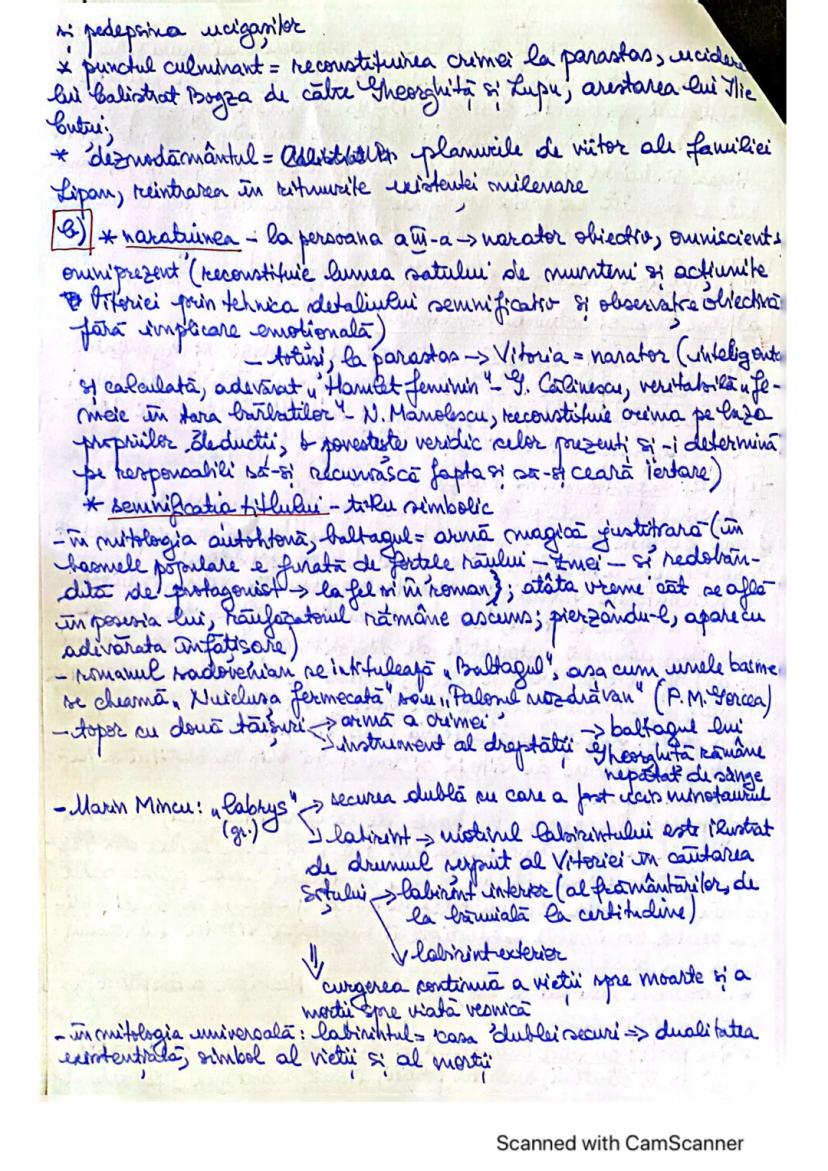 și pedepsirea ucigașilor
* punctul culminant = reconstituirea crimei la parastas, uciderea
lui Calistrat Bogza de către Gheorghiță și Lupu, arestarea lui Ilie
Cuțui;
* deznodământul = planurile de viitor ale familiei
Lipan, reintrarea în ritmurile existenței milenare
b) * narațiunea – la persoana a III-a → narator obiectiv, omniscient,
omniprezent (reconstituie lumea satului de munteni și acțiunile
Vitoriei prin tehnica detaliului semnificativ și observație obiectivă
fără implicare emoțională)
– totuși, la parastas → Vitoria = narator (inteligentă
și calculată, adevărat „Hamlet feminin" – G. Călinescu, veritabilă „fe-
meie în țara bărbaților" – N. Manolescu, reconstituie crima pe baza
propriilor deducții, o povestește veridic celor prezenți și-i determină
pe responsabili să-și recunoască fapta și să-și ceară iertare)
* semnificația titlului – titlu simbolic
– în mitologia autohtonă, baltagul = armă magică justițiară (în
basmele populare e furată de forțele răului – zmei – și redobân-
dită de protagonist → la fel și în roman); atâta vreme cât se află
în posesia lui, răufăcătorul rămâne ascuns; pierzându-l, apare cu
adevărata înfățișare)
– romanul sadovenian se intitulează „Baltagul", așa cum unele basme
se cheamă „Nuielușa fermecată" sau „Paloșul năzdrăvan" (P. M. Gorcea)
– topor cu două tăișuri → armă a crimei
→ instrument al dreptății → baltagul lui
Gheorghiță rămâne
nepătat de sânge
– Marin Mincu: „labrys" → securea dublă cu care a fost ucis minotaurul
(gr.)
↘ labirint → motivul labirintului este ilustrat
de drumul șerpuit al Vitoriei în căutarea
soțului → labirint interior (al frământărilor, de
la bănuială la certitudine)
↘ labirint exterior
⇓ curgerea continuă a vieții spre moarte și a
morții spre viață veșnică
– în mitologia universală: labirintul = casa dublei securi ⇒ dualitatea
existențială, simbol al vieții și al morții
Scanned with CamScanner